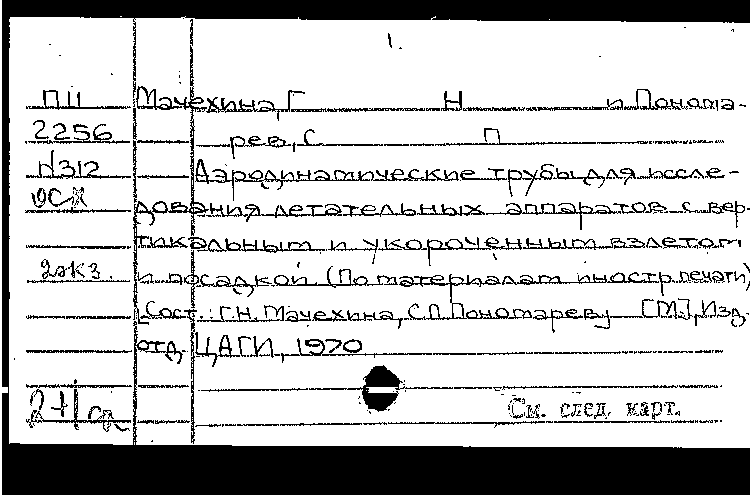 1.
П11 Мачехина, Г Н и Понома-
2256 рев, С П
N312 Аэродинамические трубы для иссле-
дования летательных аппаратов с вер-
тикальным и укороченным взлетом
2экз. и посадкой (По материалам иностр. печати)
Сост.: Г.Н. Мачехина, С.П. Пономарев [М], Изд.
отд. ЦАГИ, 1970
См. след. карт.